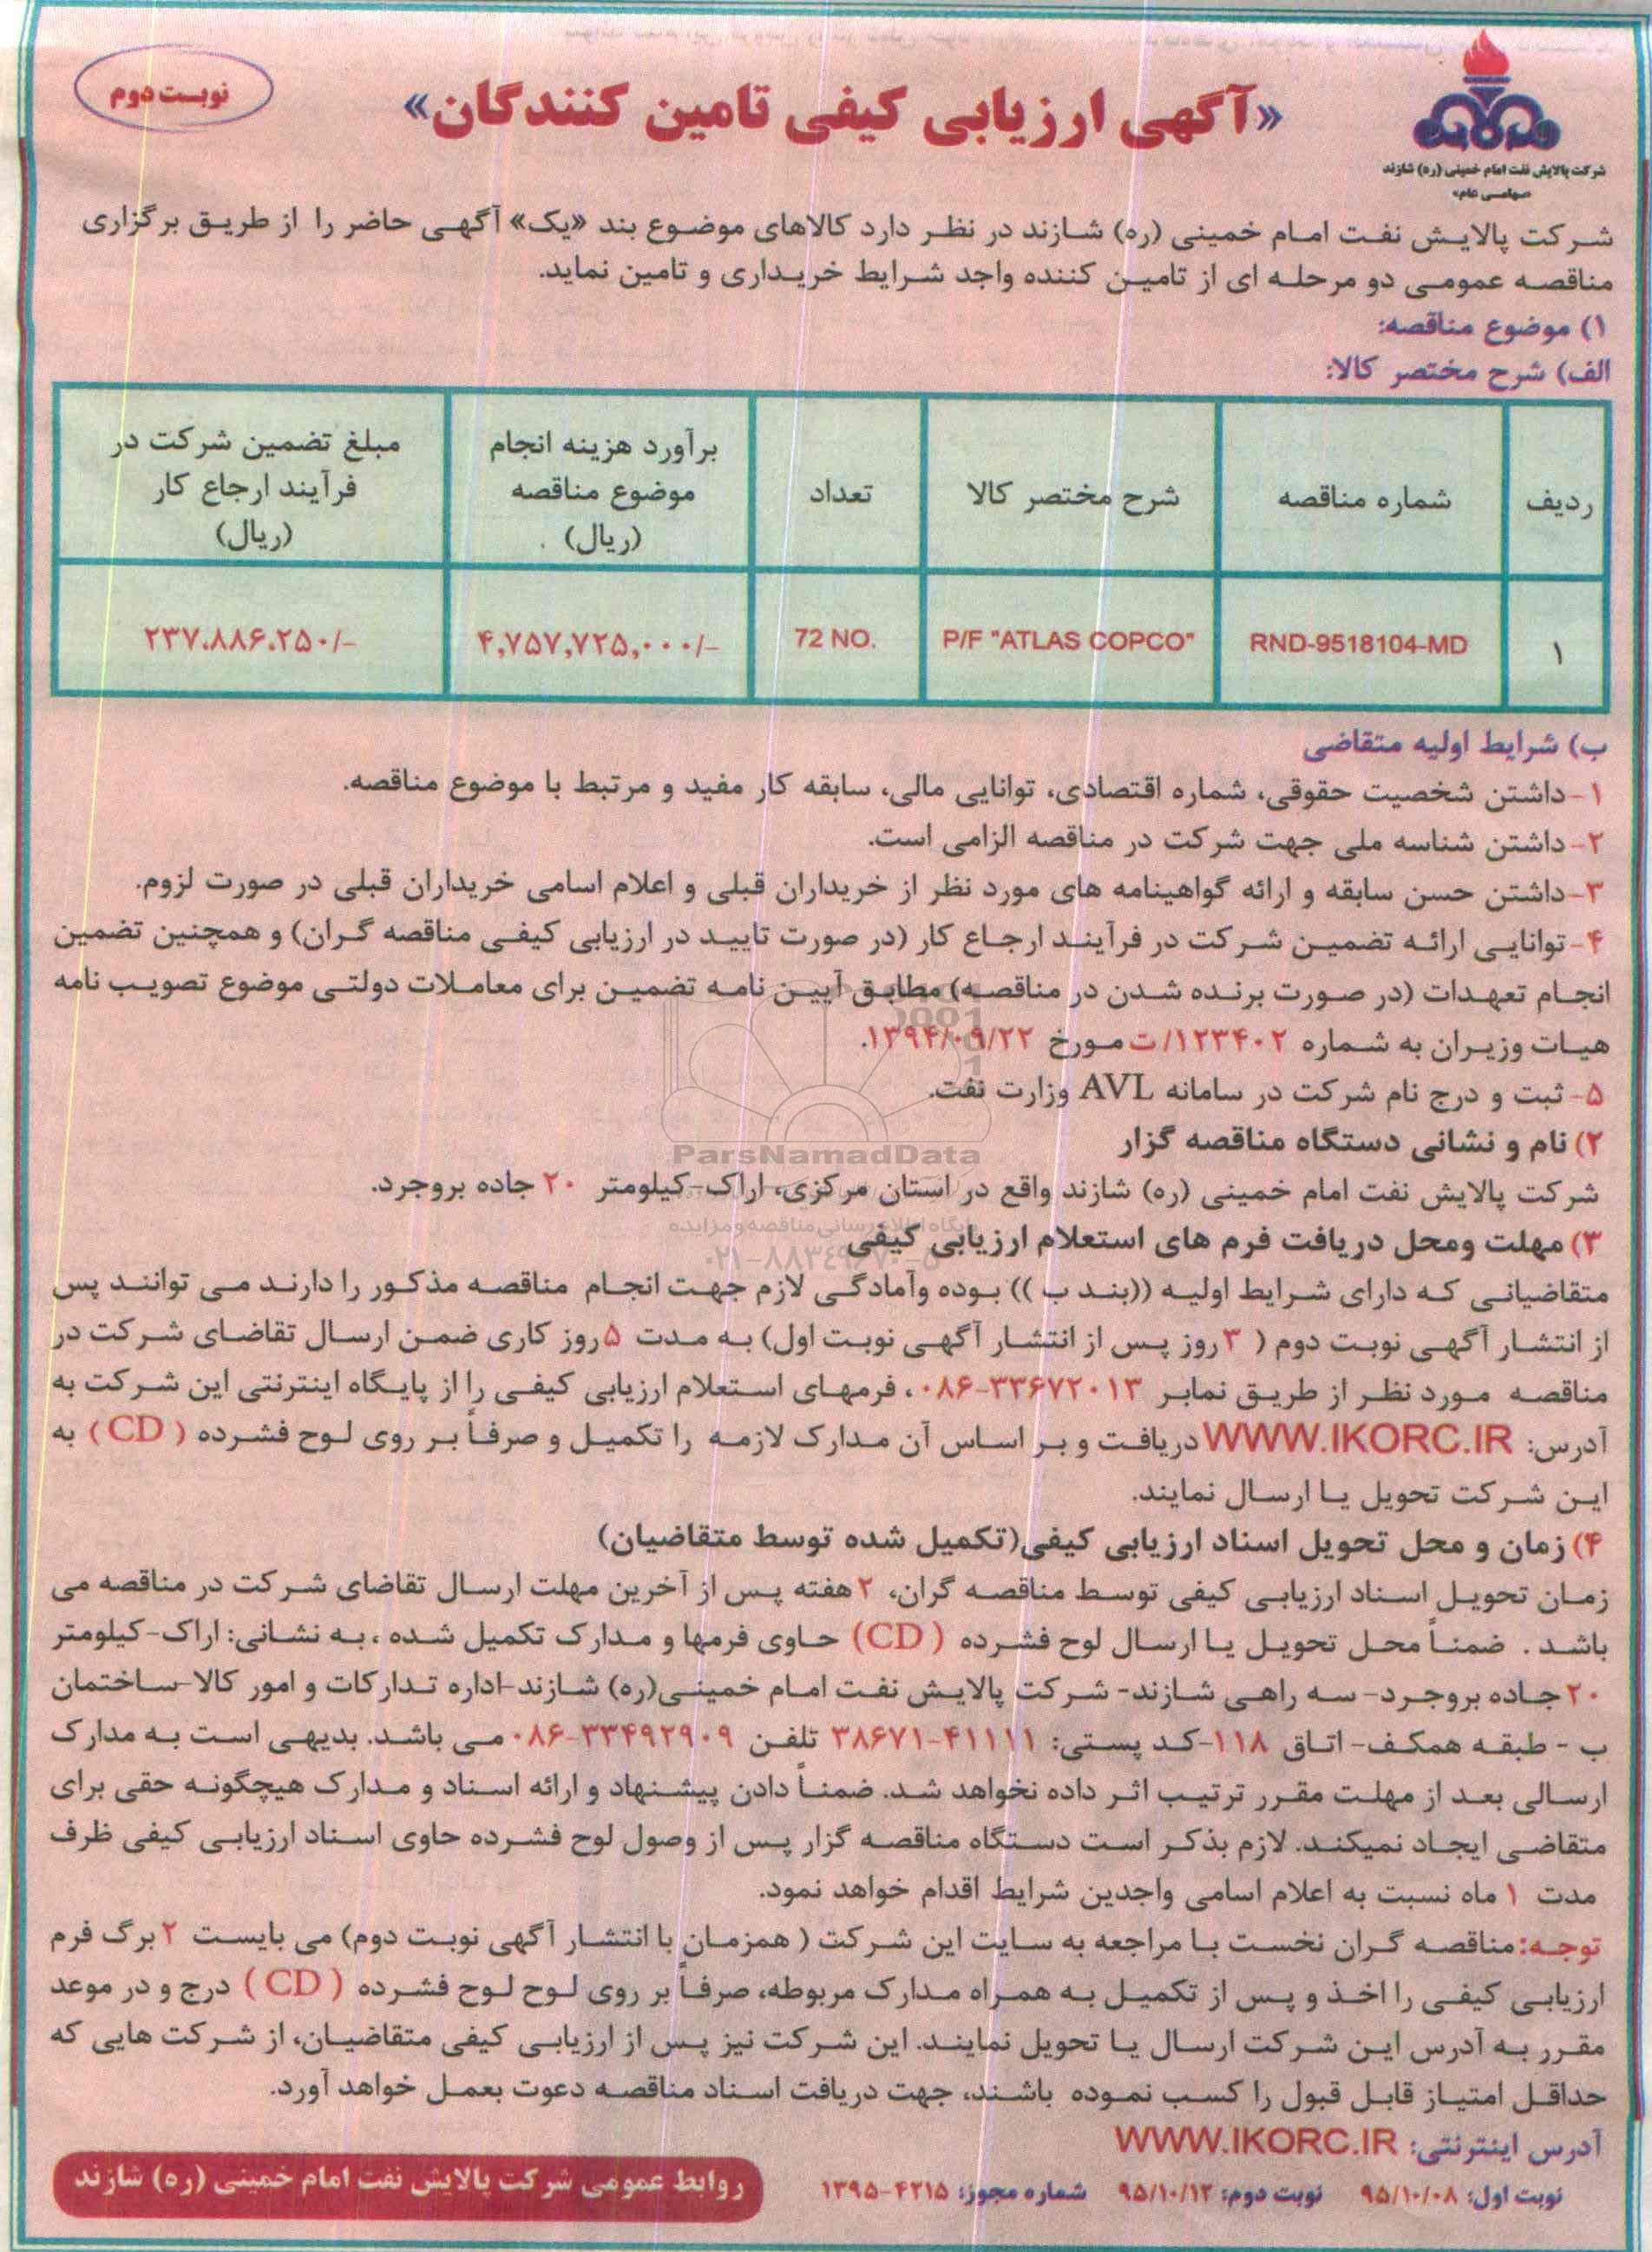 نوبت دوم
«آگهی ارزیابی کیفی تامین کنندگان»
شرکت پالایش نفت امام خمینی (ره) شازند
«سهامی عام»
شرکت پالایش نفت امام خمینی (ره) شازند در نظر دارد کالاهای موضوع بند «یک» آگهی حاضر را از طریق برگزاری
مناقصه عمومی دو مرحله ای از تامین کننده واجد شرایط خریداری و تامین نماید.
۱) موضوع مناقصه:
الف) شرح مختصر کالا:
ردیف | شماره مناقصه | شرح مختصر کالا | تعداد | برآورد هزینه انجام موضوع مناقصه (ریال) | مبلغ تضمین شرکت در فرآیند ارجاع کار (ریال)
۱ | RND-9518104-MD | P/F "ATLAS COPCO" | 72 NO. | ۴,۷۵۷,۷۲۵,۰۰۰/- | ۲۳۷،۸۸۶،۲۵۰/-
ب) شرایط اولیه متقاضی
۱- داشتن شخصیت حقوقی، شماره اقتصادی، توانایی مالی، سابقه کار مفید و مرتبط با موضوع مناقصه.
۲- داشتن شناسه ملی جهت شرکت در مناقصه الزامی است.
۳- داشتن حسن سابقه و ارائه گواهینامه های مورد نظر از خریداران قبلی و اعلام اسامی خریداران قبلی در صورت لزوم.
۴- توانایی ارائه تضمین شرکت در فرآیند ارجاع کار (در صورت تایید در ارزیابی کیفی مناقصه گران) و همچنین تضمین
انجام تعهدات (در صورت برنده شدن در مناقصه) مطابق آیین نامه تضمین برای معاملات دولتی موضوع تصویب نامه
هیات وزیران به شماره ۱۲۳۴۰۲/ت مورخ ۱۳۹۴/۰۹/۲۲.
۵- ثبت و درج نام شرکت در سامانه AVL وزارت نفت.
۲) نام و نشانی دستگاه مناقصه گزار
ParsNamadData
شرکت پالایش نفت امام خمینی (ره) شازند واقع در استان مرکزی، اراک-کیلومتر ۲۰ جاده بروجرد.
پایگاه اطلاع رسانی مناقصه و مزایده
۳) مهلت ومحل دریافت فرم های استعلام ارزیابی کیفی
۰۲۱-۸۸۳۴۹۶۷۰-۵
متقاضیانی که دارای شرایط اولیه ((بند ب )) بوده وآمادگی لازم جهت انجام مناقصه مذکور را دارند می توانند پس
از انتشار آگهی نوبت دوم ( ۳ روز پس از انتشار آگهی نوبت اول) به مدت ۵ روز کاری ضمن ارسال تقاضای شرکت در
مناقصه مورد نظر از طریق نمابر ۳۳۶۷۲۰۱۳-۰۸۶، فرمهای استعلام ارزیابی کیفی را از پایگاه اینترنتی این شرکت به
آدرس: WWW.IKORC.IR دریافت و بر اساس آن مدارک لازمه را تکمیل و صرفاً بر روی لوح فشرده ( CD ) به
این شرکت تحویل یا ارسال نمایند.
۴) زمان و محل تحویل اسناد ارزیابی کیفی(تکمیل شده توسط متقاضیان)
زمان تحویل اسناد ارزیابی کیفی توسط مناقصه گران، ۲ هفته پس از آخرین مهلت ارسال تقاضای شرکت در مناقصه می
باشد . ضمناً محل تحویل یا ارسال لوح فشرده ( CD) حاوی فرمها و مدارک تکمیل شده ، به نشانی: اراک-کیلومتر
۲۰ جاده بروجرد- سه راهی شازند- شرکت پالایش نفت امام خمینی(ره) شازند-اداره تدارکات و امور کالا-ساختمان
ب - طبقه همکف- اتاق ۱۱۸-کد پستی: ۴۱۱۱۱-۳۸۶۷۱ تلفن ۳۳۴۹۲۹۰۹-۰۸۶ می باشد. بدیهی است به مدارک
ارسالی بعد از مهلت مقرر ترتیب اثر داده نخواهد شد. ضمناً دادن پیشنهاد و ارائه اسناد و مدارک هیچگونه حقی برای
متقاضی ایجاد نمیکند. لازم بذکر است دستگاه مناقصه گزار پس از وصول لوح فشرده حاوی اسناد ارزیابی کیفی ظرف
مدت ۱ ماه نسبت به اعلام اسامی واجدین شرایط اقدام خواهد نمود.
توجه: مناقصه گران نخست با مراجعه به سایت این شرکت ( همزمان با انتشار آگهی نوبت دوم) می بایست ۲ برگ فرم
ارزیابی کیفی را اخذ و پس از تکمیل به همراه مدارک مربوطه، صرفاً بر روی لوح لوح فشرده ( CD ) درج و در موعد
مقرر به آدرس این شرکت ارسال یا تحویل نمایند. این شرکت نیز پس از ارزیابی کیفی متقاضیان، از شرکت هایی که
حداقل امتیاز قابل قبول را کسب نموده باشند، جهت دریافت اسناد مناقصه دعوت بعمل خواهد آورد.
آدرس اینترنتی: WWW.IKORC.IR
نوبت اول: ۹۵/۱۰/۰۸ نوبت دوم: ۹۵/۱۰/۱۲ شماره مجوز: ۴۲۱۵-۱۳۹۵
روابط عمومی شرکت پالایش نفت امام خمینی (ره) شازند